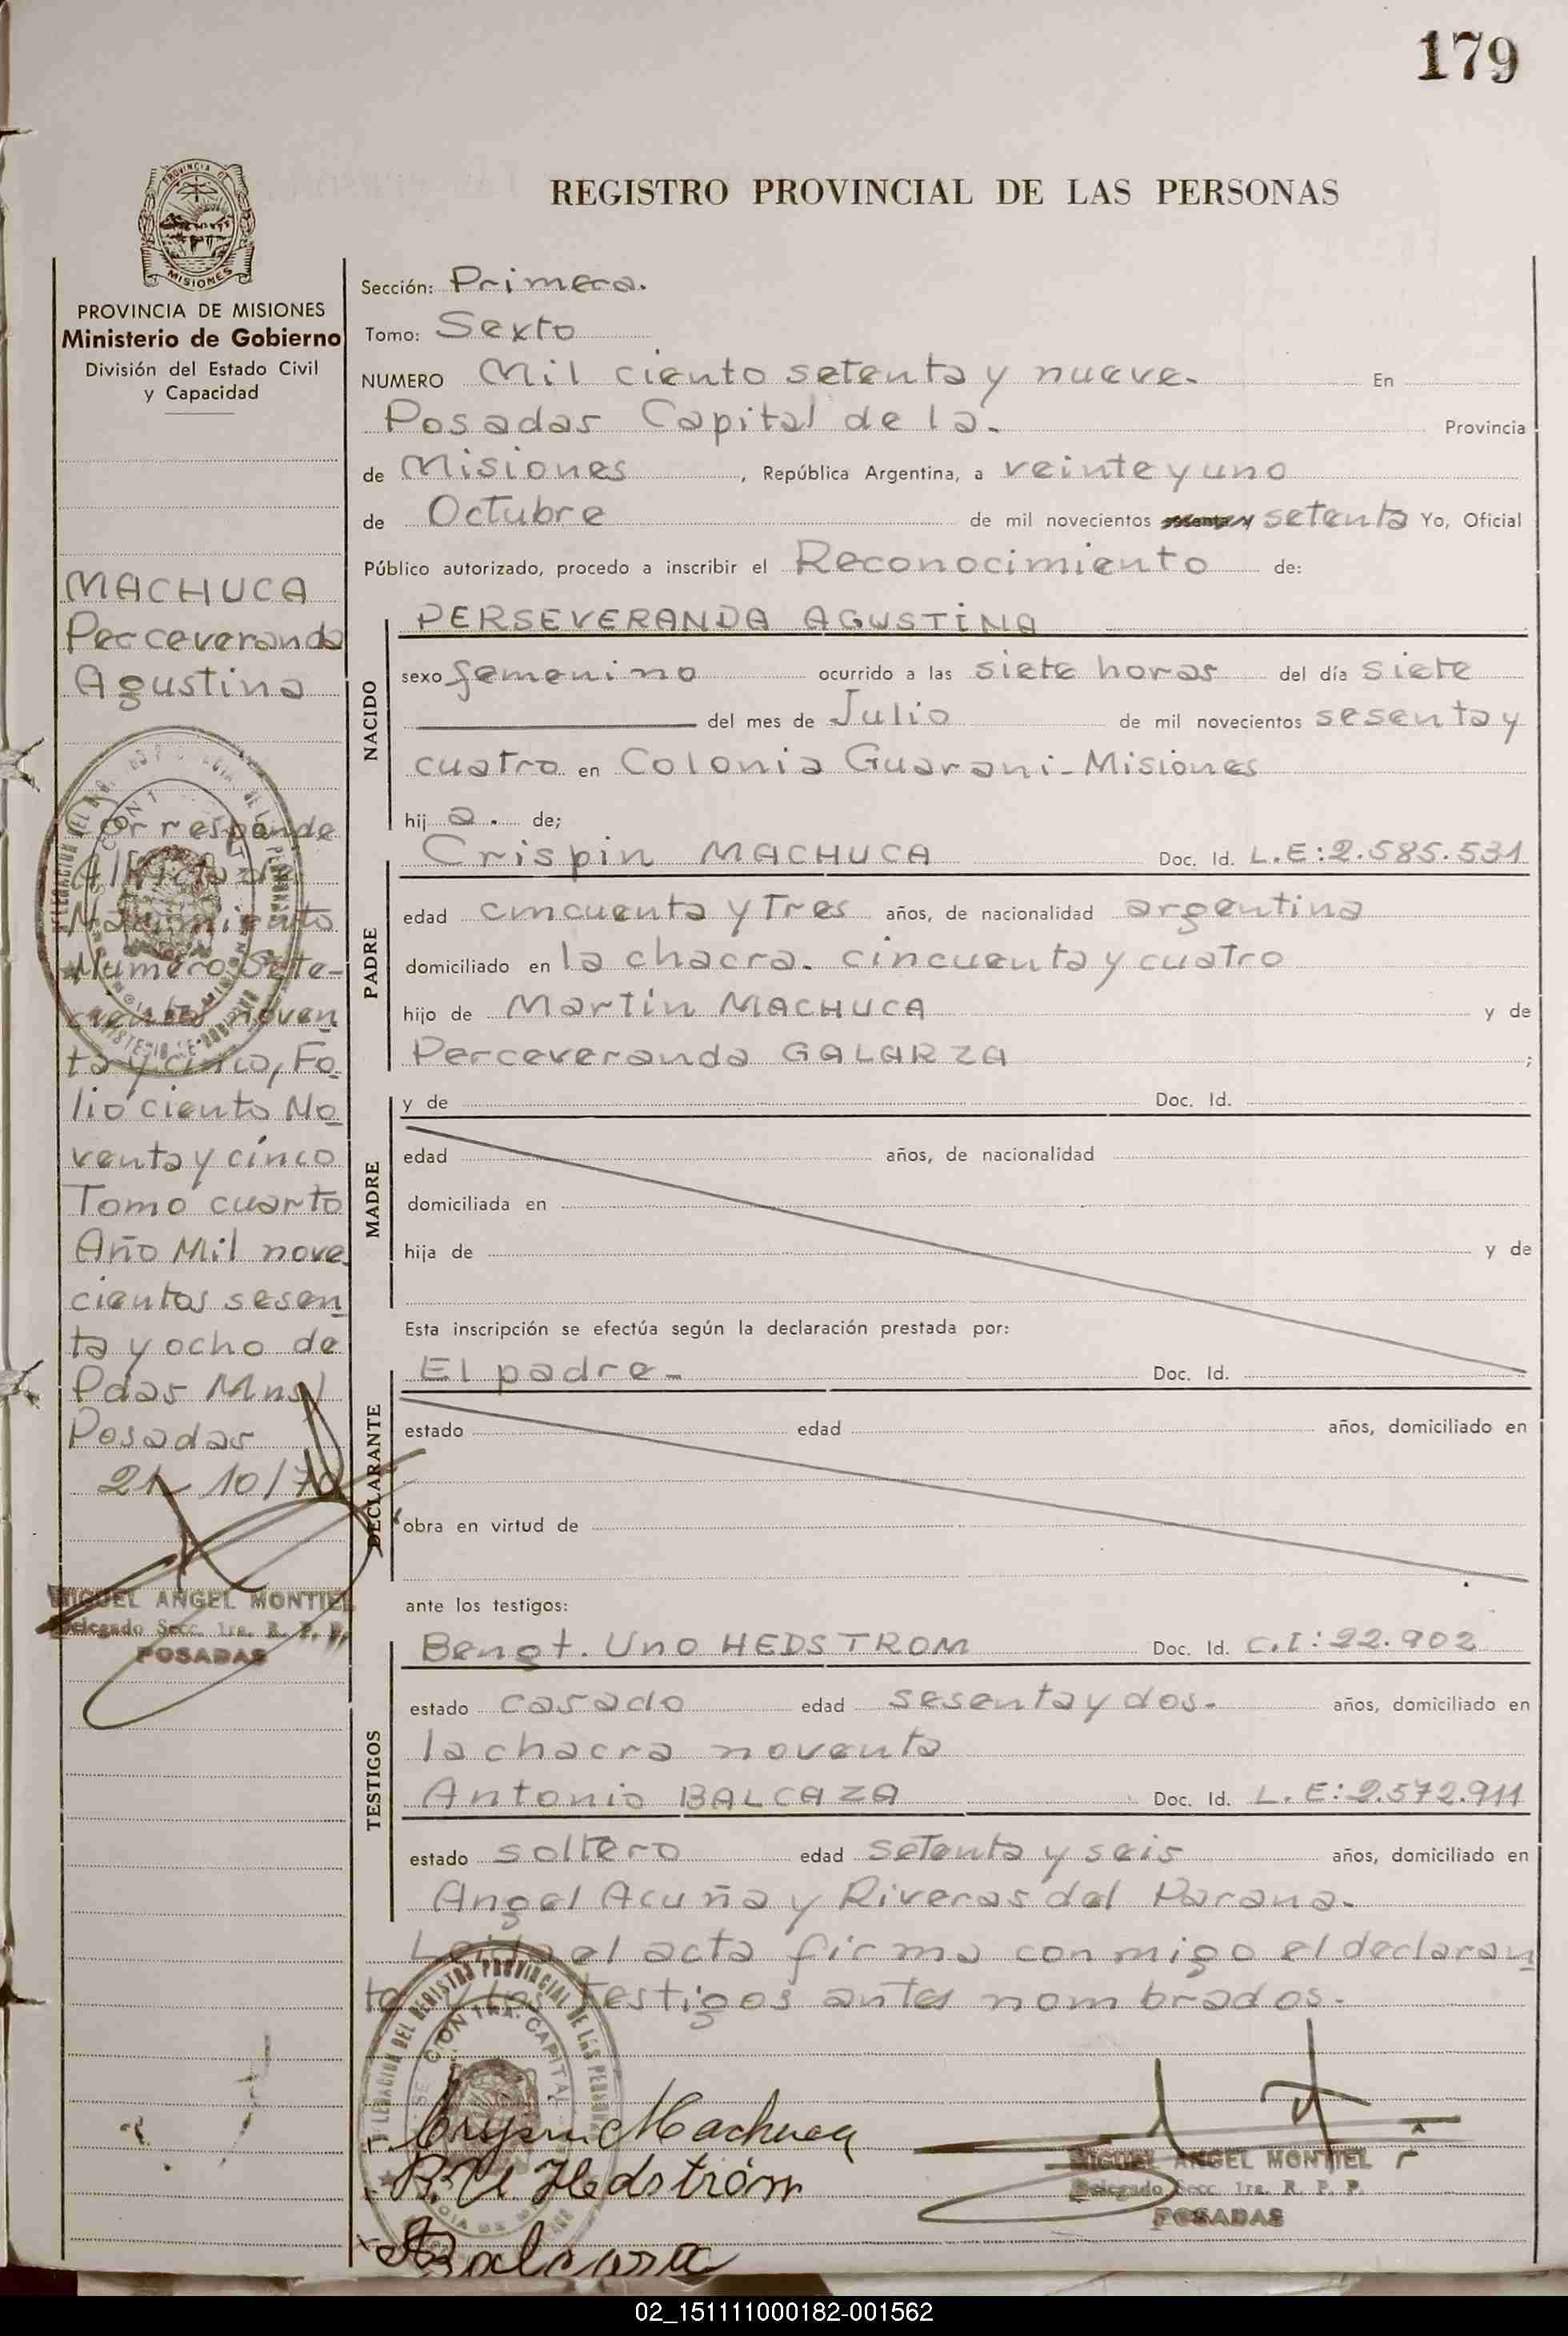 179
REGISTRO PROVINCIAL DE LAS PERSONAS
PROVINCIA DE
MISIONES
PROVINCIA DE MISIONES
Ministerio de Gobierno
División del Estado Civil
y Capacidad
MACHUCA
Perceveranda
Agustina
Corresponde
Al Acta de
Nacimiento
Numero Sete-
cientos noven
ta y cinco, Fo
lio ciento No
venta y cinco
Tomo cuarto
Año Mil nove
cientos sesen
ta y ocho de
Pdas Mns)
Posadas
21-10/70
MIGUEL ANGEL MONTIEL
Delegado Secc. 1ra. R. P. P.
POSADAS
Sección: Primera.
Tomo: Sexto
NUMERO Mil ciento setenta y nueve. En
Posadas Capital de la. Provincia
de Misiones, República Argentina, a veinte y uno
de Octubre de mil novecientos setenta Yo, Oficial
Público autorizado, procedo a inscribir el Reconocimiento de:
NACIDO
PERSEVERANDA AGUSTINA
sexo femenino ocurrido a las siete horas del día siete
del mes de Julio de mil novecientos sesenta y
cuatro en Colonia Guarani-Misiones
hij a. de;
PADRE
Crispin MACHUCA Doc. Id. L.E:2.585.531
edad cincuenta y Tres años, de nacionalidad argentina
domiciliado en la chacra. cincuenta y cuatro
hijo de Martin MACHUCA y de
Perceveranda GALARZA ;
MADRE
y de Doc. Id.
edad años, de nacionalidad
domiciliada en
hija de y de
Esta inscripción se efectúa según la declaración prestada por:
DECLARANTE
El padre- Doc. Id.
estado edad años, domiciliado en
obra en virtud de
ante los testigos:
TESTIGOS
Bengt. Uno HEDSTROM Doc. Id. C.I:22.902
estado casado edad sesenta y dos. años, domiciliado en
la chacra noventa
Antonio BALCAZA Doc. Id. L.E:2.572.911
estado soltero edad setenta y seis años, domiciliado en
Angel Acuña y Riveras del Parana.
Leida el acta firma conmigo el declaran
te y los testigos antes nombrados.
DELEGACION DEL REGISTRO PROVINCIAL DE LAS PERSONAS
SECCION 1RA. CAPITAL
Crispin Machuca
B.U. Hedström
A Balcaza
MIGUEL ANGEL MONTIEL
Delegado Secc. 1ra. R. P. P.
POSADAS
02_151111000182-001562